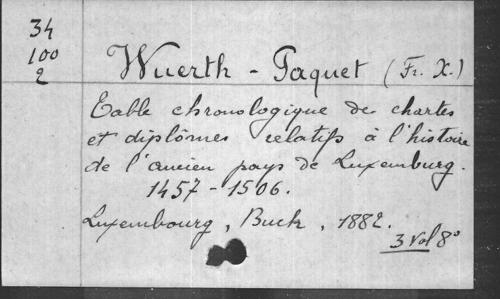 34
100
2
Wuerth - Paquet (Fr. X.)
Table chronologique de chartes
et diplômes relatifs à l'histoire
de l'ancien pays de Luxemburg.
1457 - 1506.
Luxembourg, Buck, 1882.
3 vol 8°